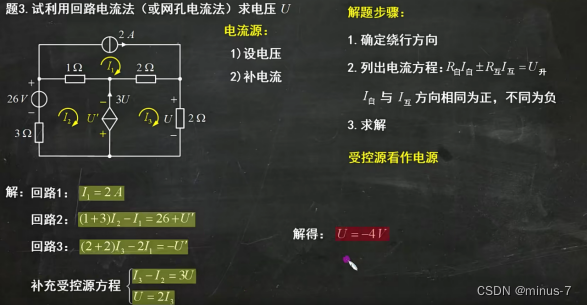 题3.试利用回路电流法（或网孔电流法）求电压 U
2 A
I₁
1Ω
2Ω
26V
+
−
3Ω
I₂
U'
−
+
3U
I₃
+
U
−
2Ω
电流源：
1)设电压
2)补电流
解题步骤：
1.确定绕行方向
2.列出电流方程：R自I自±R互I互=U升
I自 与 I互 方向相同为正，不同为负
3.求解
受控源看作电源
解：回路1： I₁=2A
回路2： (1+3)I₂−I₁=26+U'
回路3： (2+2)I₃−2I₁=−U'
补充受控源方程 { I₃−I₂=3U
U=2I₃
解得： U=−4V
CSDN @minus-7